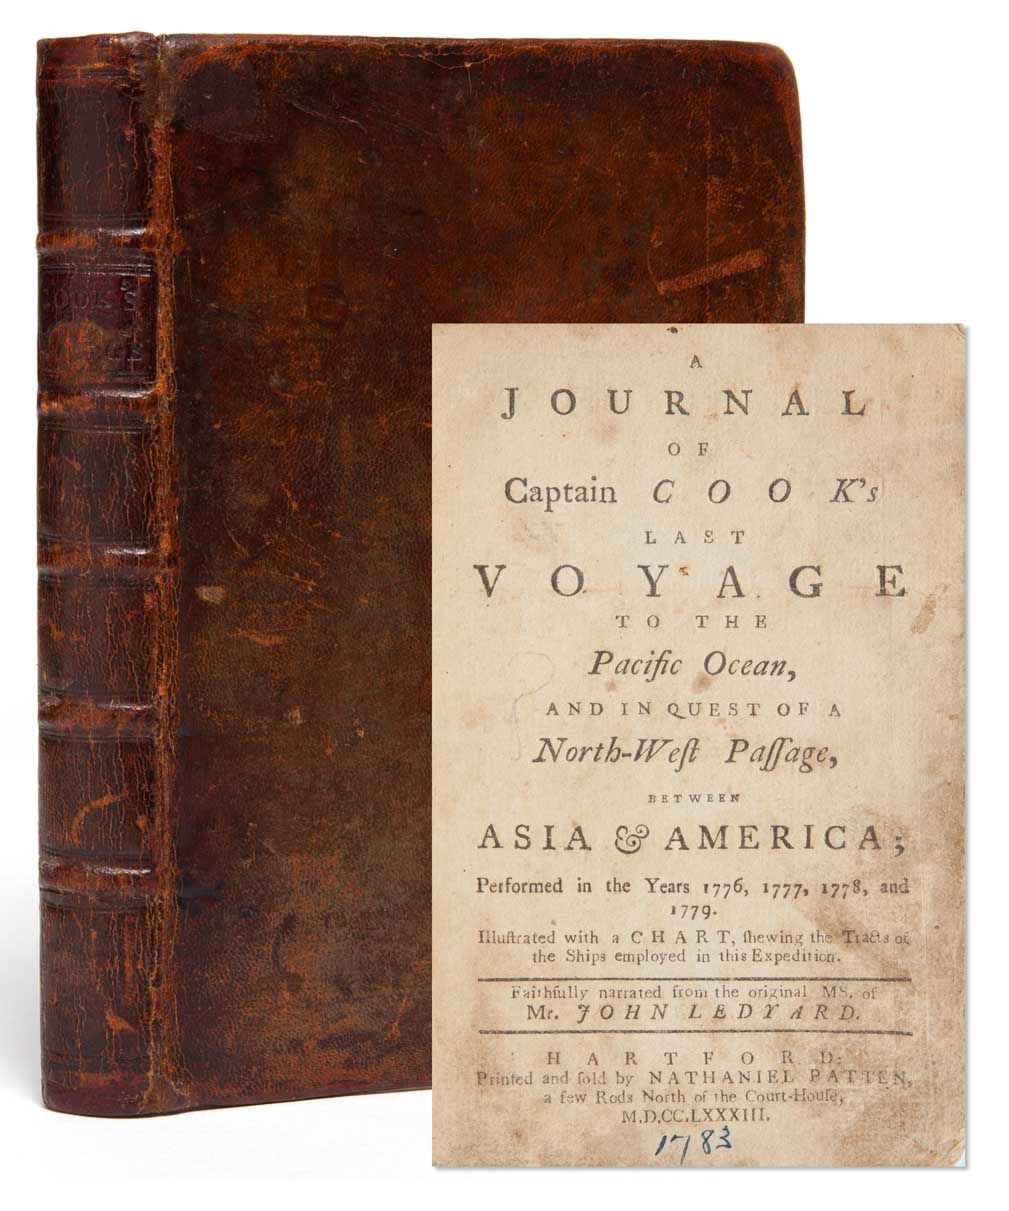 A
JOURNAL
OF
Captain COOK's
LAST
VOYAGE
TO THE
Pacific Ocean,
AND IN QUEST OF A
North-Weſt Paſſage,
BETWEEN
ASIA & AMERICA;
Performed in the Years 1776, 1777, 1778, and
1779.
Illuſtrated with a CHART, ſhewing the Tracts of
the Ships employed in this Expedition.
Faithfully narrated from the original MS. of
Mr. JOHN LEDYARD.
HARTFORD:
Printed and ſold by NATHANIEL PATTEN,
a few Rods North of the Court-Houſe,
M.D.CC.LXXXIII.
1783